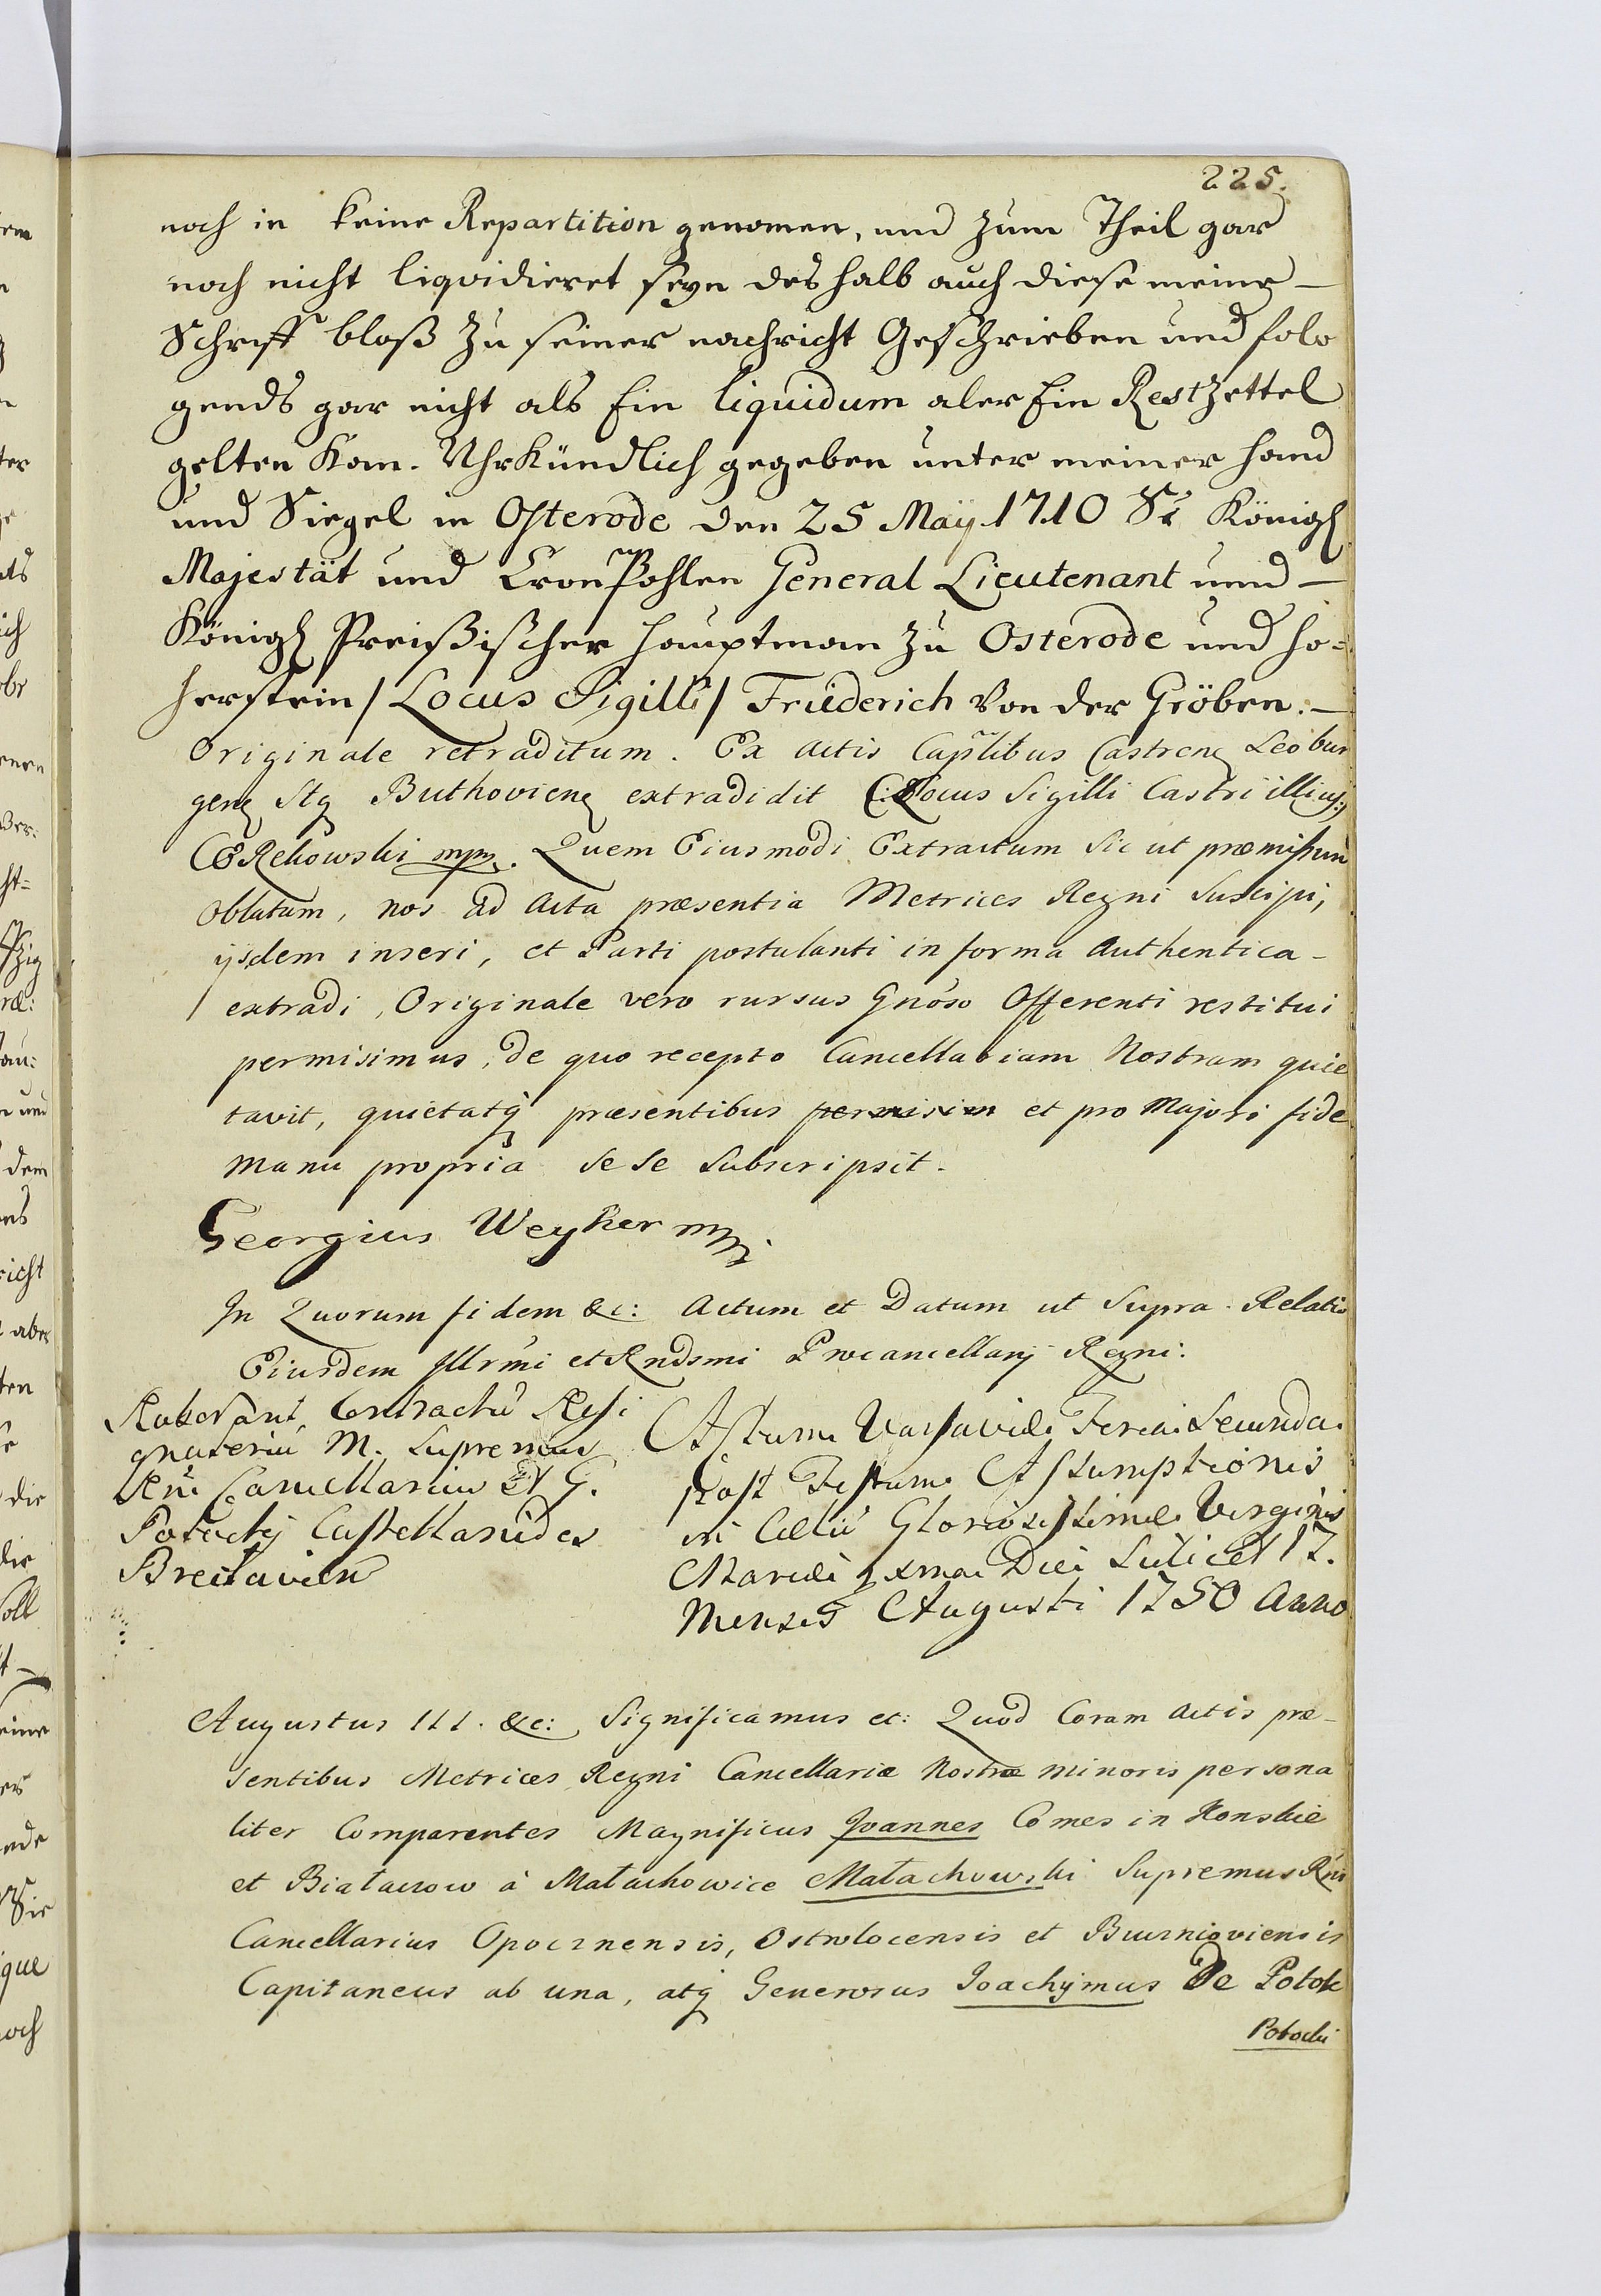 225.
noch in keine Repartition genomen, und zum Theil gar
noch nicht liquidieret seyn deshalb auch diese meine –
Schrifft bloß zu seiner nachricht Geschrieben und folg
gends gar nicht als Ein liquidum aler Ein Restzettel
gelten Kan. Uhrkündlich gegeben unter meiner Hand
und Siegel in Osterode den 25 Maÿ 1710 Sr Königl
Majestät und Cron Pohlen General Lieutenant und –
Königl Preißischer Hauptman zu Osterode und Ho=
herstein / Locus Sigilli / Friederich von der Gröben. –
Originale retraditum. Ex actis Caplibus Castrenꝫ Leobur
genꝫ Stꝗ Buthovienꝫ extradidit (:Locus Sigilli Castri illius:)
CERekowski mpp. Quem Eiusmodi Extractum sic ut præmissum
oblatum, nos ad Acta præsentia Metrices Regni suscipi,
ijsdem inseri, et Parti postulanti in forma Authentica –
extradi, Originale vero rursus Gnoso Offerenti restitui
permisimus, de quo recepto Cancellariam Nostram quie
tavit, quietatꝗ præsentibus et pro Majori fide
manu propria sese subscripsit.
Georgius Weyher mpp.
In Quorum fidem &c: Actum et Datum ut supra. Relatio
Eiusdem Illrmi et Rndsmi Procancellarij Regni.
Roborant Contractũ Resi
gnatoriũ M. Supremus
Rni Cancellarius et G.
Potocky Castellanides
Breclavien
Actum Varsaviæ Feria Secunda
post Festum Assumptionis
in Cœlũ Gloriosissimæ Virginis
Mariæ xma Die Scilicet 17.
Mensis Augusti 1750 Anno
Augustus III. &c: Significamus et: Quod Coram Actis præ-
sentibus Metrices Regni Cancellariæ Nostræ minoris persona
liter Comparentes Magnificus Joannes Comes in Konskie
et Białaczow à Małachowice Małachowski Supremus Rni
Cancellarius Opocznensis, Ostrolocensis et Capitaneus
Capitaneus ab una, atꝗ Generosus Joachÿmus De Potok
Potocki